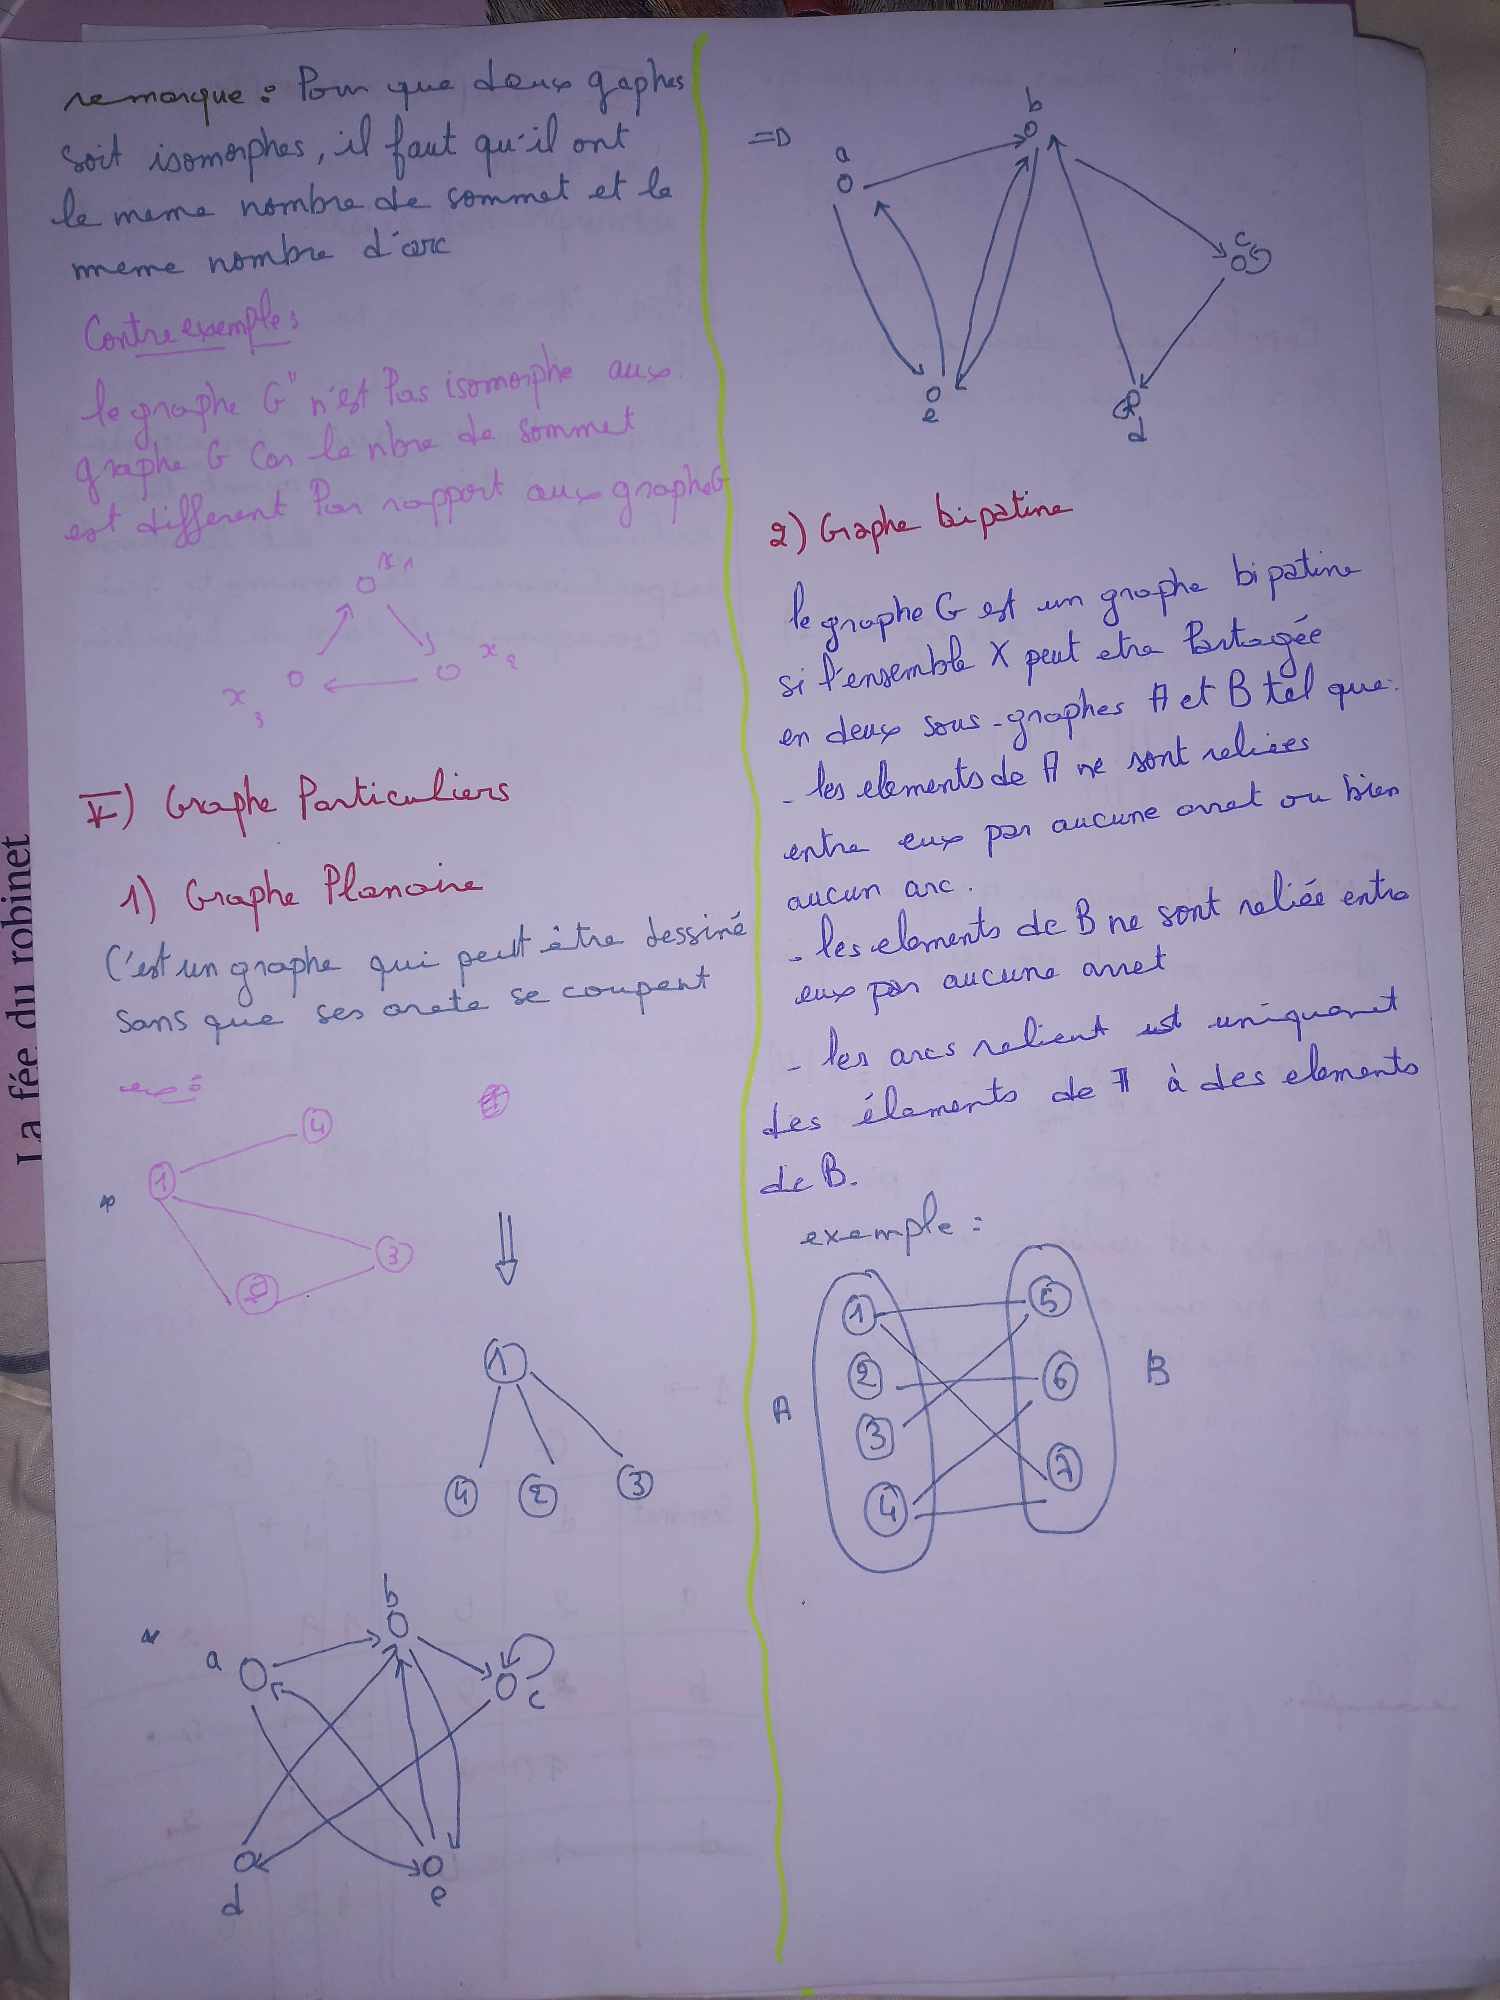 La fée du robinet
remarque : Pour que deux gaphes
soit isomorphes, il faut qu'il ont
le meme nombre de sommet et le
meme nombre d'arc
Contre exemples
le graphe G" n'est Pas isomorphe aux
graphe G Car le nbre de sommet
est different Par rapport aux graphe G
x1
x2
x3
V) Graphe Particuliers
1) Graphe Planaire
C'est un graphe qui peut être dessiné
sans que ses arete se coupent
exp :
4
1
3
2
1
4 2 3
b
a
c
d e
=D
b
a
c
e
d
2) Graphe bipatine
le graphe G est un graphe bipatine
si l'ensemble X peut etre Partagée
en deux sous-graphes A et B tel que:
- les elements de A ne sont reliées
entre eux par aucune arret ou bien
aucun arc.
- les elements de B ne sont reliée entre
eux par aucune arret
- les arcs relient est uniquement
des élements de A à des elements
de B.
exemple :
1 5
2 6
A B
3
4 7